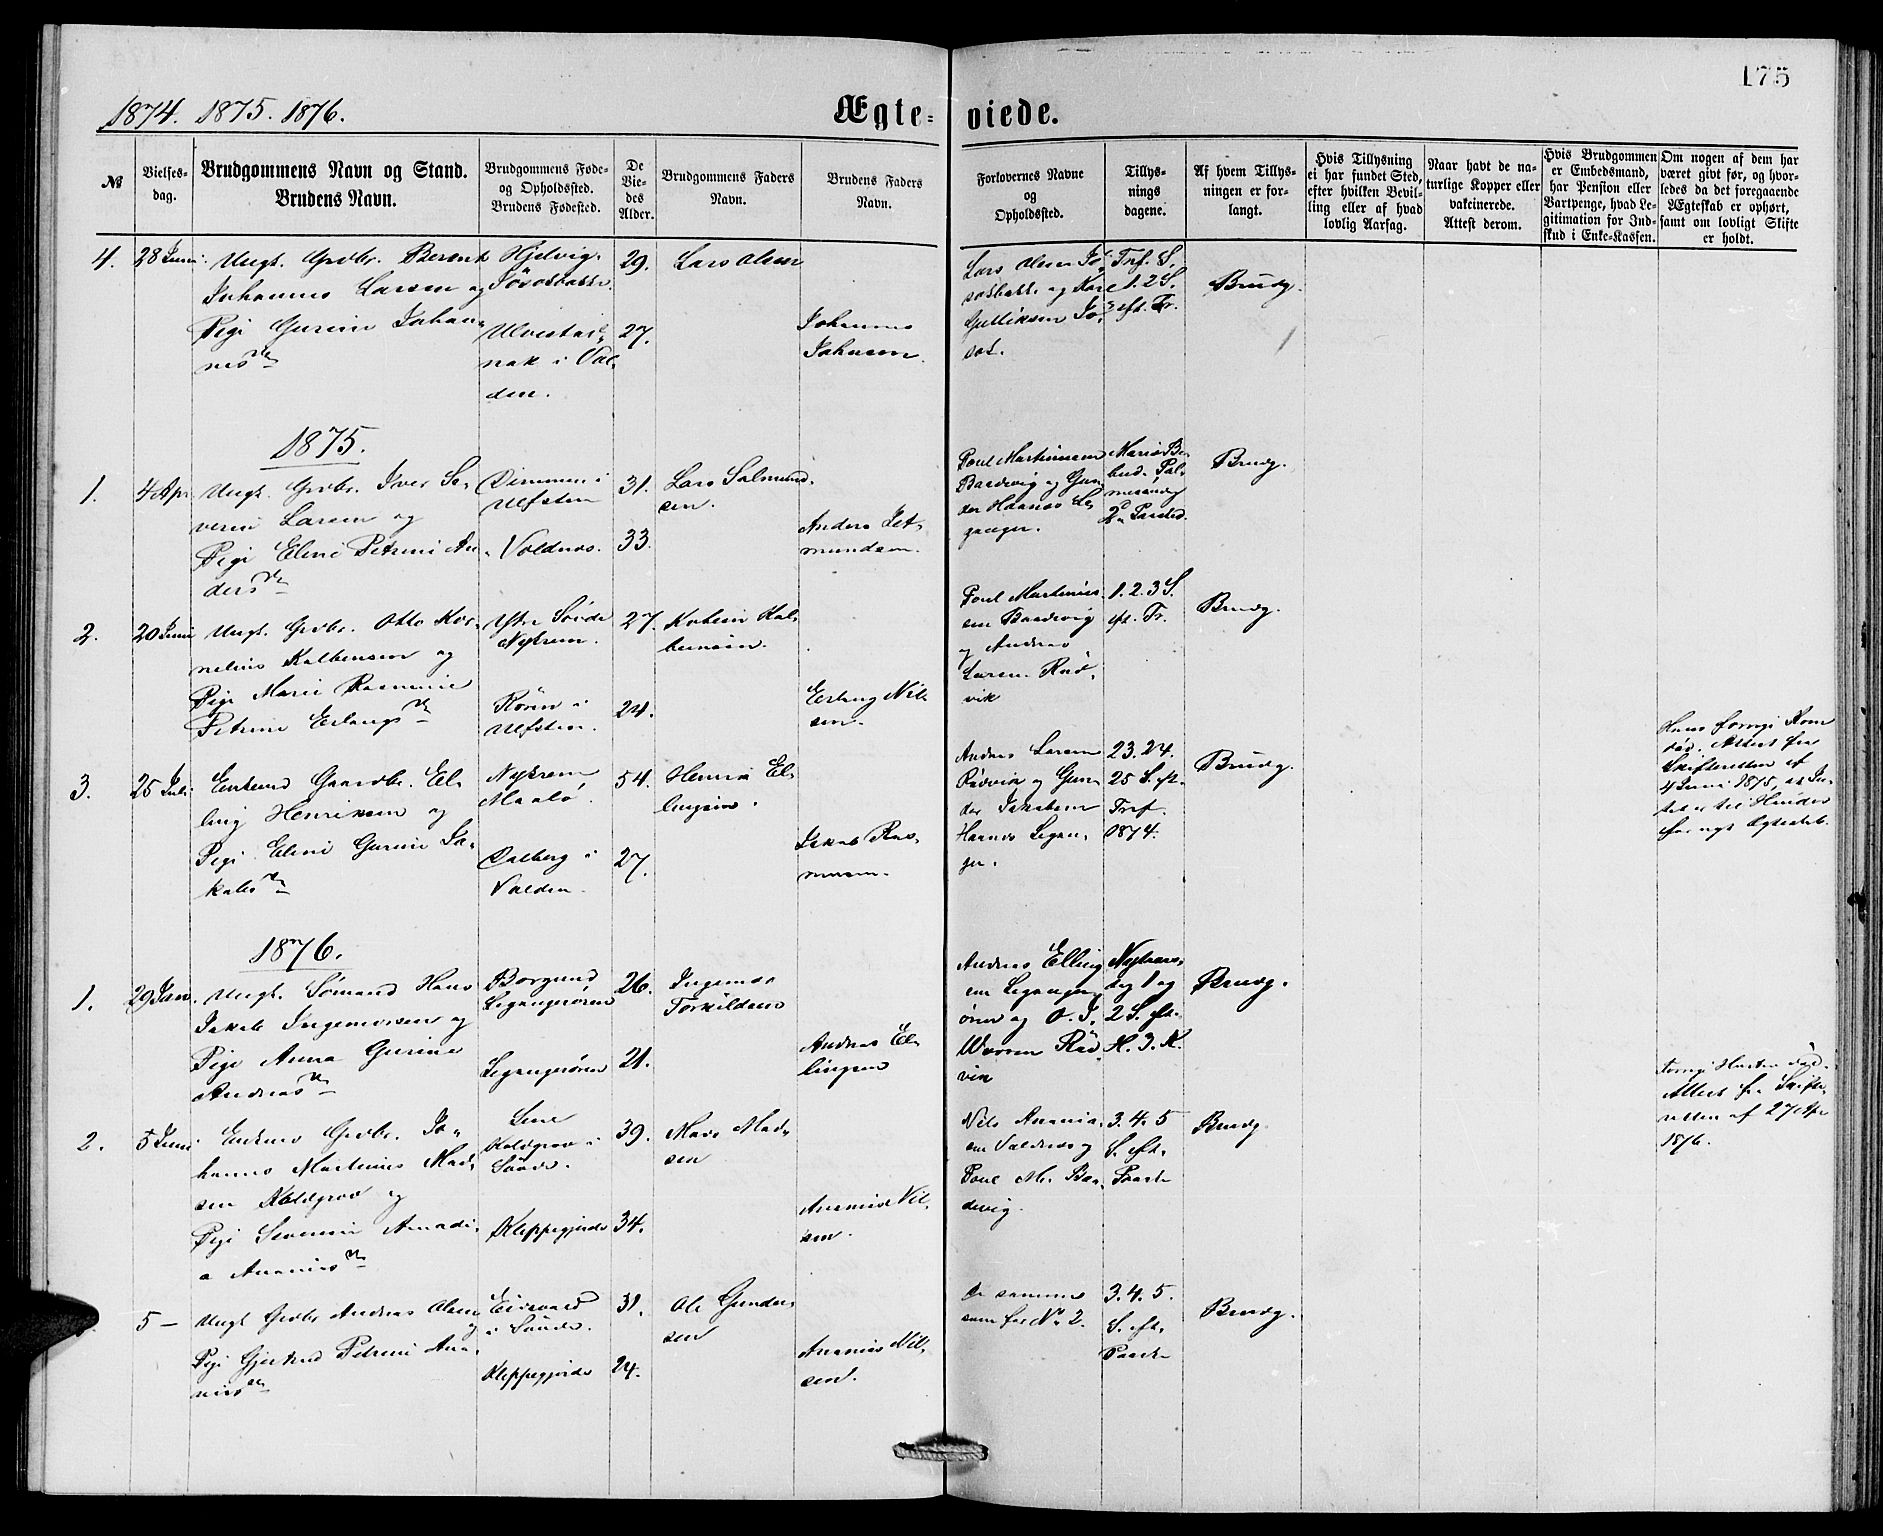 175
1874. 1875. 1876.
Ægte-
viede.
№
Vielses-
dag.
Brudgommens Navn og Stand.
Brudens Navn.
Brudgommens Føde-
og Opholdssted.
Brudens Fødested.
De
Vie-
des
Alder.
Brudgommens Faders
Navn.
Brudens Faders
Navn.
Forlovernes Navne
og
Opholdssted.
Tillys-
nings
dagene.
Af hvem Tillys-
ningen er for-
langt.
Hvis Tillysning
ei har fundet Sted,
efter hvilken Bevil-
ling eller af hvad
lovlig Aarsag.
Naar havt de na-
turlige Kopper eller
vakcinerede.
Attest derom.
Hvis Brudgommen
er Embedsmand,
har Pension eller
Vartpenge, hvad Le-
gitimation for Ind-
skud i Enke-Kassen.
Om nogen af dem har
været givt før, og hvor-
ledes da det foregaaende
Ægteskab er ophørt,
samt om lovligt Skifte
er holdt.
4.
28 Juni
Ungk. Grdbr. Berent
Johannes Larsen og
Pige Gurine Johan-
nesdr
29.
27.
Lars Olsen
Johannes
Johnsen.
Lars Olsen
Brudg.
1875.
1.
4 Apr
Ungk. Grdbr. Iver Se-
verin Larsen og
Pige Eline Petrine An-
dersdr
Dimmen i
Ulfsten
Valdnes.
31.
33.
Lars Salmund-
sen.
Anders Jet-
mundsen.
Poul Martinussen
Baadsvig og Gun-
der Haanes Le-
ganger.
Maria Be-
bud. Pal-
mesøndag
2den Paasked.
Brudg.
2.
20 Juni
Ungk. Grdbr. Otto Kor-
nelius Kolbensen og
Pige Marie Rasmine
Petrine Erlingsdr
Ytre Søvde
Nykrem.
Røren i
Ulfsten.
27.
24.
Kolbein Kol-
beinsen.
Erling Nil-
sen.
Poul Martinus-
sen Baadsvig
og Andreas
Larsen Rød-
vik
1. 2. 3 S.
eft. Tr.
Brudg.
3.
25 Juli
Enkemd Gaardbr. El-
ling Henriksen og
Pige Eline Gurine Ja-
kobsdr
Nykrem
Maalø.
Dalberg i
Valden.
54.
27.
Henrik El-
lingsen.
Jakob Ras-
mussen.
Andreas Larsen
Rødvik og Gun-
der Jakobsen
Haanes Legan-
ger.
23. 24.
25 S. eft.
Tref.
1874.
Brudg.
Hans forrige Kone
død. Attest fra
Skifteretten af
4 Juni 1875, at In-
tet er til Hinder
for nyt Ægteskab.
1876.
1.
29 Jan.
Ungk. Sømand Hans
Jakob Ingemorsen og
Pige Anna Gurine
Andreasdr
Borgund
Legangerøren
Legangerøren
26.
21.
Ingemor
Torkildsen
Andreas El-
lingsen
Andreas Elling-
sen Leganger-
øren og O. J.
Warren Rød-
vik
Nytaars-
dag 1 og
2 S. eft.
H. 3. K.
Brudg.
2.
5 Juni
Enkem. Grdbr. Jo-
hannes Martinus Mad-
sen Koldgrov og
Pige Severine Amadi-
a Ananiasdr
Koldgrov i
Søvde.
Kleppegjerde
39.
34.
Mads Mad-
sen
Ananias Nil-
sen.
Nils Anania-
sen Valdnes og
Poul M. Baa-
dsvig.
3. 4. 5
S. eft.
Paaske
Brudg.
Forrige Hustru død.
Attest fra Skifte-
retten af 27 Apr
1876.
5 –
Ungk. Grdbr. Andreas Olsen
og
Pige Gjertrud Petrine Ana-
niasdr
i Søvde.
Kleppegjerde
31.
24.
Ole Gunder-
sen
Ananias Nil-
sen.
De samme
som for No 2.
3. 4. 5.
S. eft.
Paaske
Brudg.